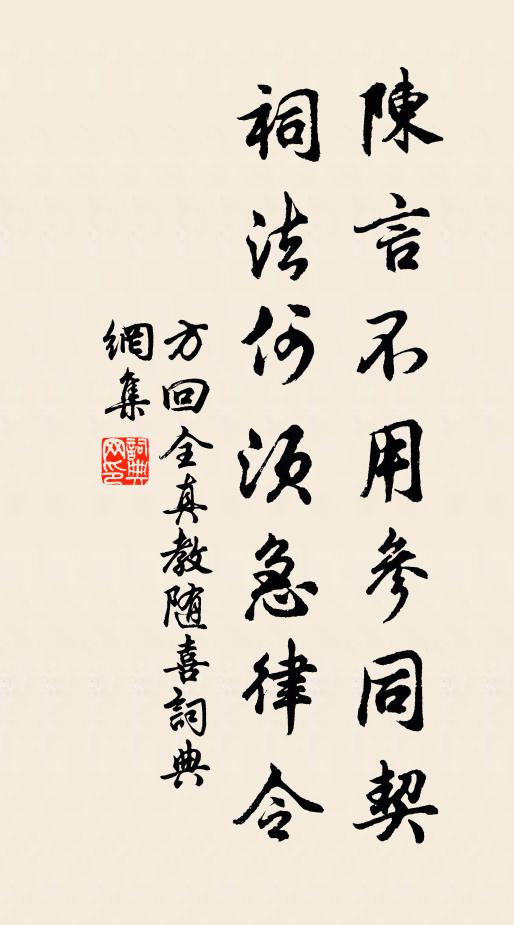 陳言不用參同契
祠法何須急律令
方回全真教随喜詞典
網集
詞典網印